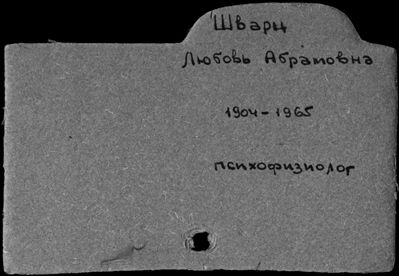 Шварц
Любовь Абрамовна
1904-1965
психофизиолог